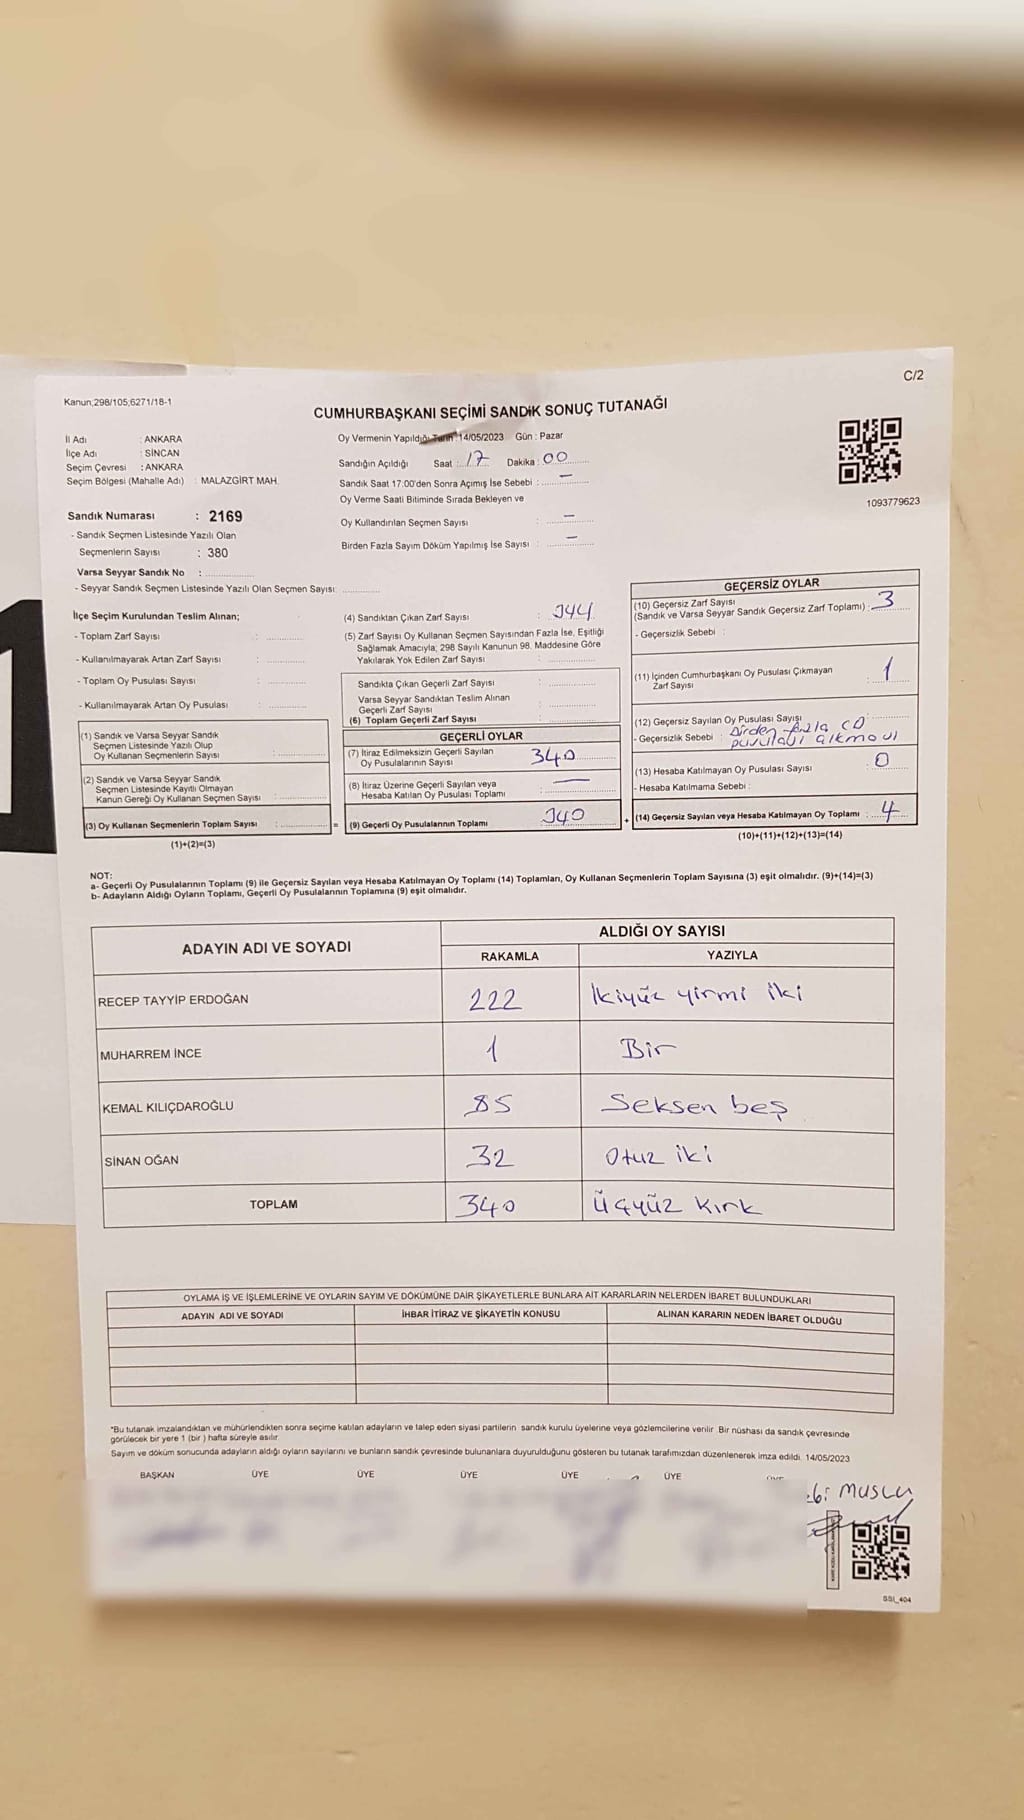 C/2
Kanun,298/105;6271/18-1
CUMHURBAŞKANI SEÇİMİ SANDIK SONUÇ TUTANAĞI
İl Adı : ANKARA
İlçe Adı : SİNCAN
Seçim Çevresi : ANKARA
Seçim Bölgesi (Mahalle Adı) : MALAZGİRT MAH.
Sandık Numarası : 2169
- Sandık Seçmen Listesinde Yazılı Olan
Seçmenlerin Sayısı : 380
Varsa Seyyar Sandık No :
- Seyyar Sandık Seçmen Listesinde Yazılı Olan Seçmen Sayısı:
Oy Vermenin Yapıldığı Tarih 14/05/2023 Gün : Pazar
Sandığın Açıldığı Saat : 17 Dakika : 00
Sandık Saat 17:00'den Sonra Açımış İse Sebebi : —
Oy Verme Saati Bitiminde Sırada Bekleyen ve
Oy Kullandırılan Seçmen Sayısı : —
Birden Fazla Sayım Döküm Yapılmış İse Sayısı : —
1093779623
İlçe Seçim Kurulundan Teslim Alınan;
- Toplam Zarf Sayısı :
- Kullanılmayarak Artan Zarf Sayısı :
- Toplam Oy Pusulası Sayısı :
- Kullanılmayarak Artan Oy Pusulası :
(1) Sandık ve Varsa Seyyar Sandık
Seçmen Listesinde Yazılı Olup
Oy Kullanan Seçmenlerin Sayısı :
(2) Sandık ve Varsa Seyyar Sandık
Seçmen Listesinde Kayıtlı Olmayan
Kanun Gereği Oy Kullanan Seçmen Sayısı :
(3) Oy Kullanan Seçmenlerin Toplam Sayısı : =
(1)+(2)=(3)
(4) Sandıktan Çıkan Zarf Sayısı : 344
(5) Zarf Sayısı Oy Kullanan Seçmen Sayısından Fazla İse, Eşitliği
Sağlamak Amacıyla; 298 Sayılı Kanunun 98. Maddesine Göre
Yakılarak Yok Edilen Zarf Sayısı :
Sandıkta Çıkan Geçerli Zarf Sayısı :
Varsa Seyyar Sandıktan Teslim Alınan
Geçerli Zarf Sayısı :
(6) Toplam Geçerli Zarf Sayısı :
GEÇERLİ OYLAR
(7) İtiraz Edilmeksizin Geçerli Sayılan
Oy Pusulalarının Sayısı 340
(8) İtiraz Üzerine Geçerli Sayılan veya
Hesaba Katılan Oy Pusulası Toplamı : —
(9) Geçerli Oy Pusulalarının Toplamı 340 +
GEÇERSİZ OYLAR
(10) Geçersiz Zarf Sayısı
(Sandık ve Varsa Seyyar Sandık Geçersiz Zarf Toplamı) : 3
- Geçersizlik Sebebi :
(11) İçinden Cumhurbaşkanı Oy Pusulası Çıkmayan
Zarf Sayısı 1
(12) Geçersiz Sayılan Oy Pusulası Sayısı :
- Geçersizlik Sebebi : Birden fazla CD
(13) Hesaba Katılmayan Oy Pusulası Sayısı : 0
- Hesaba Katılmama Sebebi :
(14) Geçersiz Sayılan veya Hesaba Katılmayan Oy Toplamı : 4
(10)+(11)+(12)+(13)=(14)
NOT:
a- Geçerli Oy Pusulalarının Toplamı (9) ile Geçersiz Sayılan veya Hesaba Katılmayan Oy Toplamı (14) Toplamları, Oy Kullanan Seçmenlerin Toplam Sayısına (3) eşit olmalıdır. (9)+(14)=(3)
b- Adayların Aldığı Oyların Toplamı, Geçerli Oy Pusulalarının Toplamına (9) eşit olmalıdır.
ADAYIN ADI VE SOYADI ALDIĞI OY SAYISI
RAKAMLA YAZIYLA
RECEP TAYYİP ERDOĞAN 222 İkiyüz yirmi iki
MUHARREM İNCE 1 Bir
KEMAL KILIÇDAROĞLU 85 Seksen beş
SİNAN OĞAN 32 Otuz iki
TOPLAM 340 Üçyüz Kırk
OYLAMA İŞ VE İŞLEMLERİNE VE OYLARIN SAYIM VE DÖKÜMÜNE DAİR ŞİKAYETLERLE BUNLARA AİT KARARLARIN NELERDEN İBARET BULUNDUKLARI
ADAYIN ADI VE SOYADI İHBAR İTİRAZ VE ŞİKAYETİN KONUSU ALINAN KARARIN NEDEN İBARET OLDUĞU
*Bu tutanak imzalandıktan ve mühürlendikten sonra seçime katılan adayların ve talep eden siyasi partilerin sandık kurulu üyelerine veya gözlemcilerine verilir. Bir nüshası da sandık çevresinde
görülecek bir yere 1 (bir ) hafta süreyle asılır.
Sayım ve döküm sonucunda adayların aldığı oyların sayılarını ve bunların sandık çevresinde bulunanlara duyurulduğunu gösteren bu tutanak tarafımızdan düzenlenerek imza edildi. 14/05/2023
BAŞKAN ÜYE ÜYE ÜYE ÜYE ÜYE
MUSLU
SSI_404